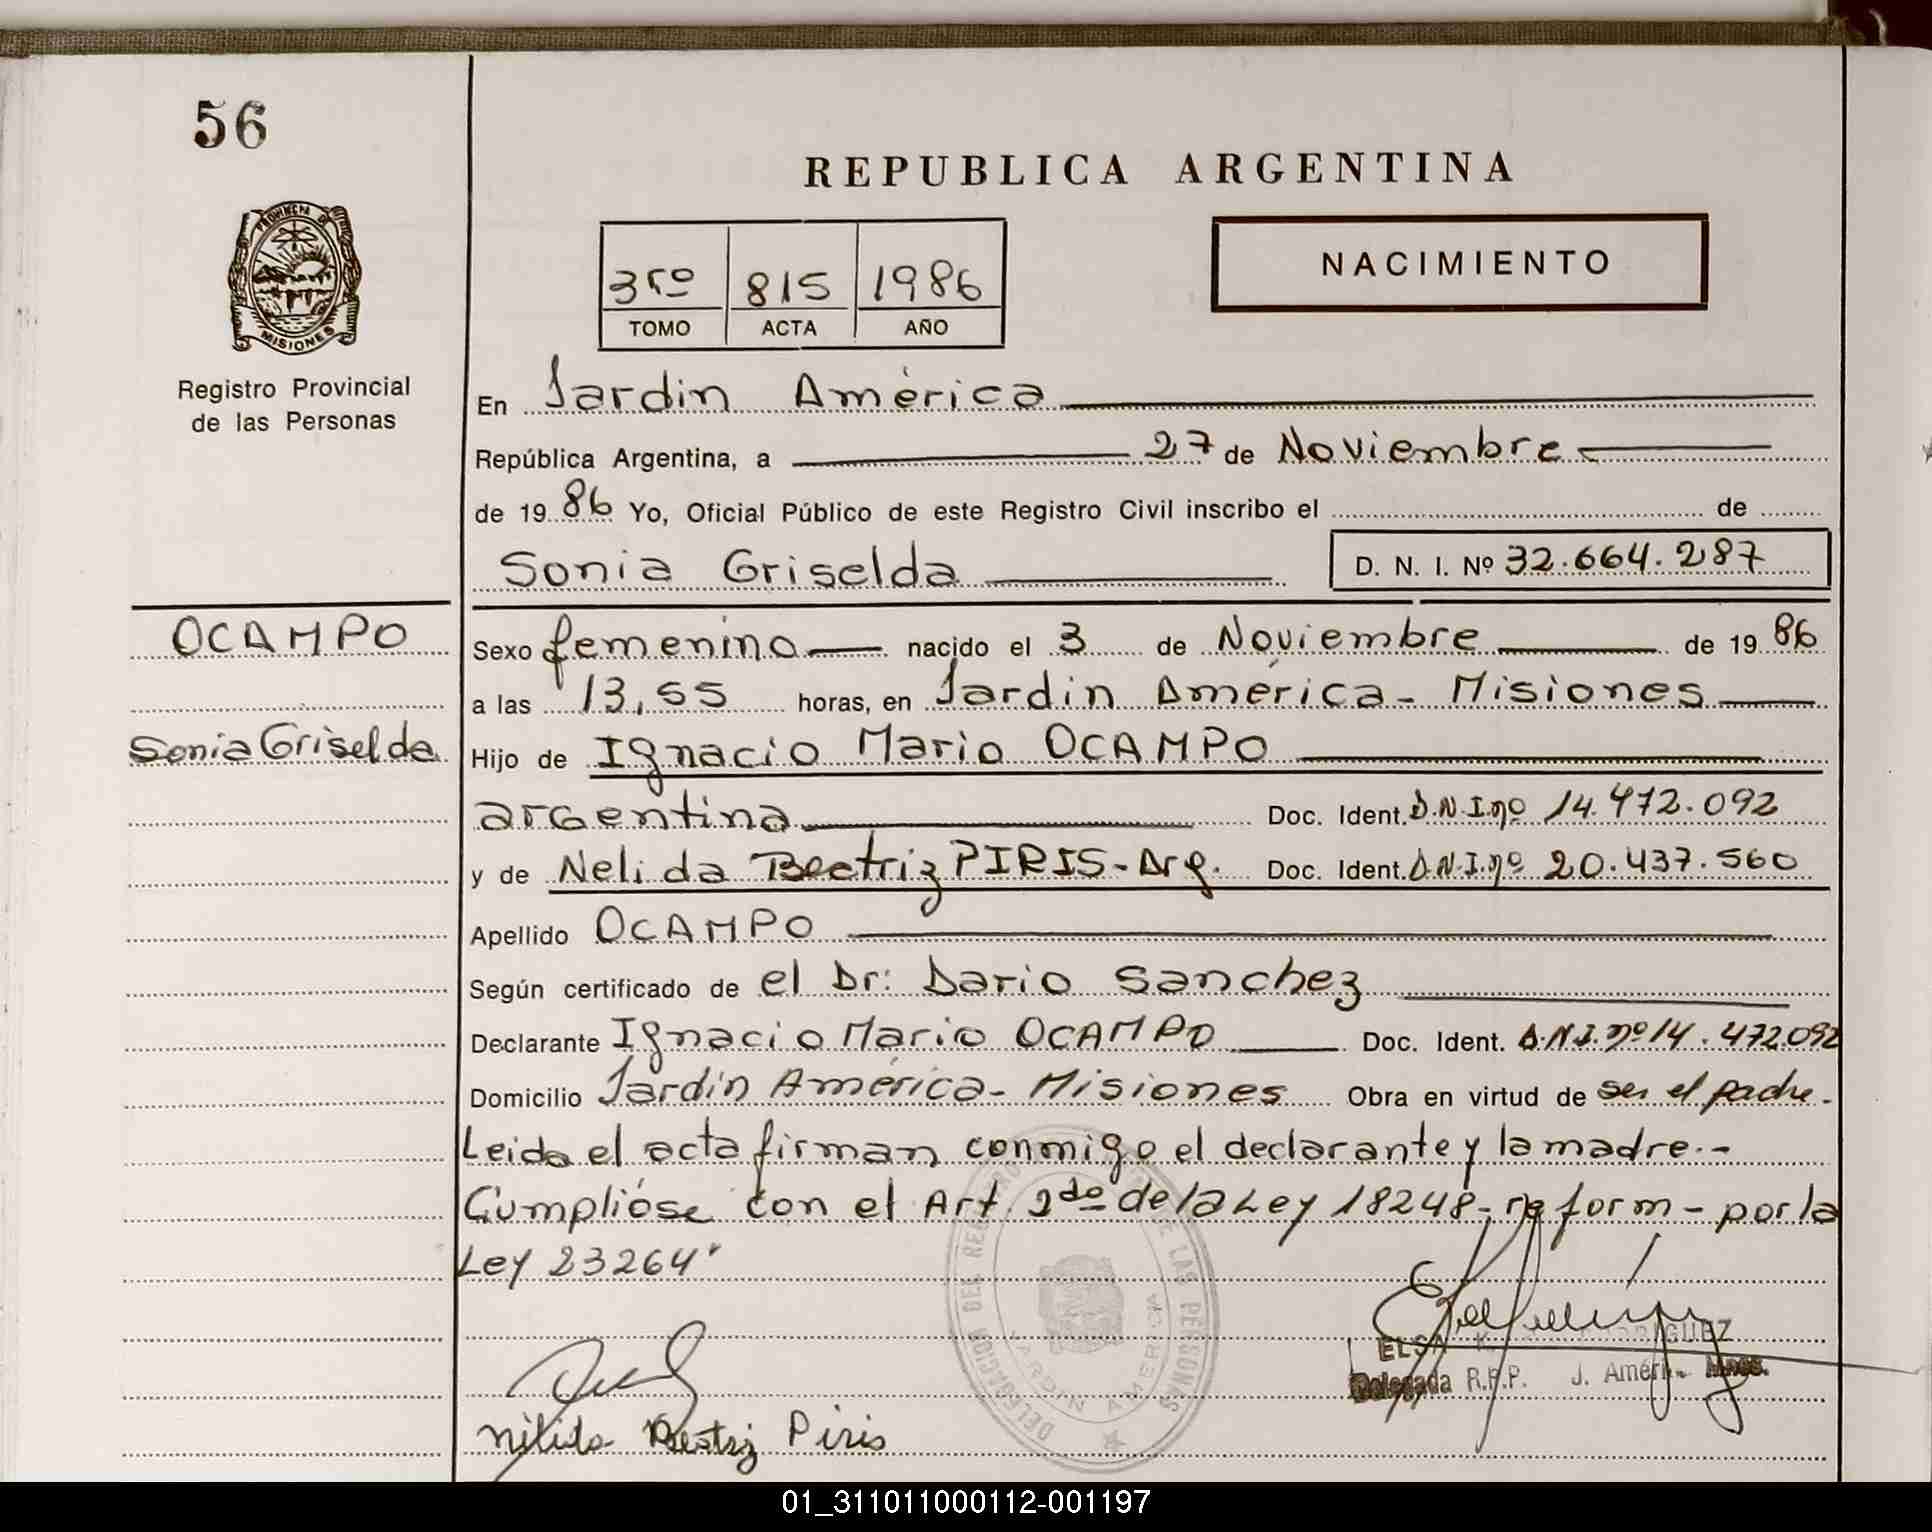 56
REPUBLICA ARGENTINA
PROVINCIA DE
MISIONES
NACIMIENTO
3ro 815 1986
TOMO ACTA AÑO
Registro Provincial
de las Personas
En Jardin América
República Argentina, a 27 de Noviembre
de 1986 Yo, Oficial Público de este Registro Civil inscribo el de
Sonia Griselda D. N. I. Nº 32.664.287
OCAMPO
Sexo femenino nacido el 3 de Noviembre de 1986
a las 13,55 horas, en Jardin América - Misiones
Sonia Griselda
Hijo de Ignacio Mario OCAMPO
argentina Doc. Ident. D.N.I.nº 14.472.092
y de Nelida Beatriz PIRIS - Arg. Doc. Ident. D.N.I.nº 20.437.560
Apellido OCAMPO
Según certificado de el Dr: Dario Sanchez
Declarante Ignacio Mario OCAMPO Doc. Ident. D.N.I.nº 14.472.092
Domicilio Jardin América - Misiones Obra en virtud de ser el padre.-
Leida el acta firman conmigo el declarante y la madre.-
Cumplióse con el Art. 2do de la Ley 18248 - reform - por la
Ley 23264
DELEGACION DEL REGISTRO DE LAS PERSONAS
JARDIN AMERICA
ELSA K. RODRIGUEZ
Delegada R.P.P. J. Améri. Mnes.
Nilida Beatriz Piris
01_311011000112-001197